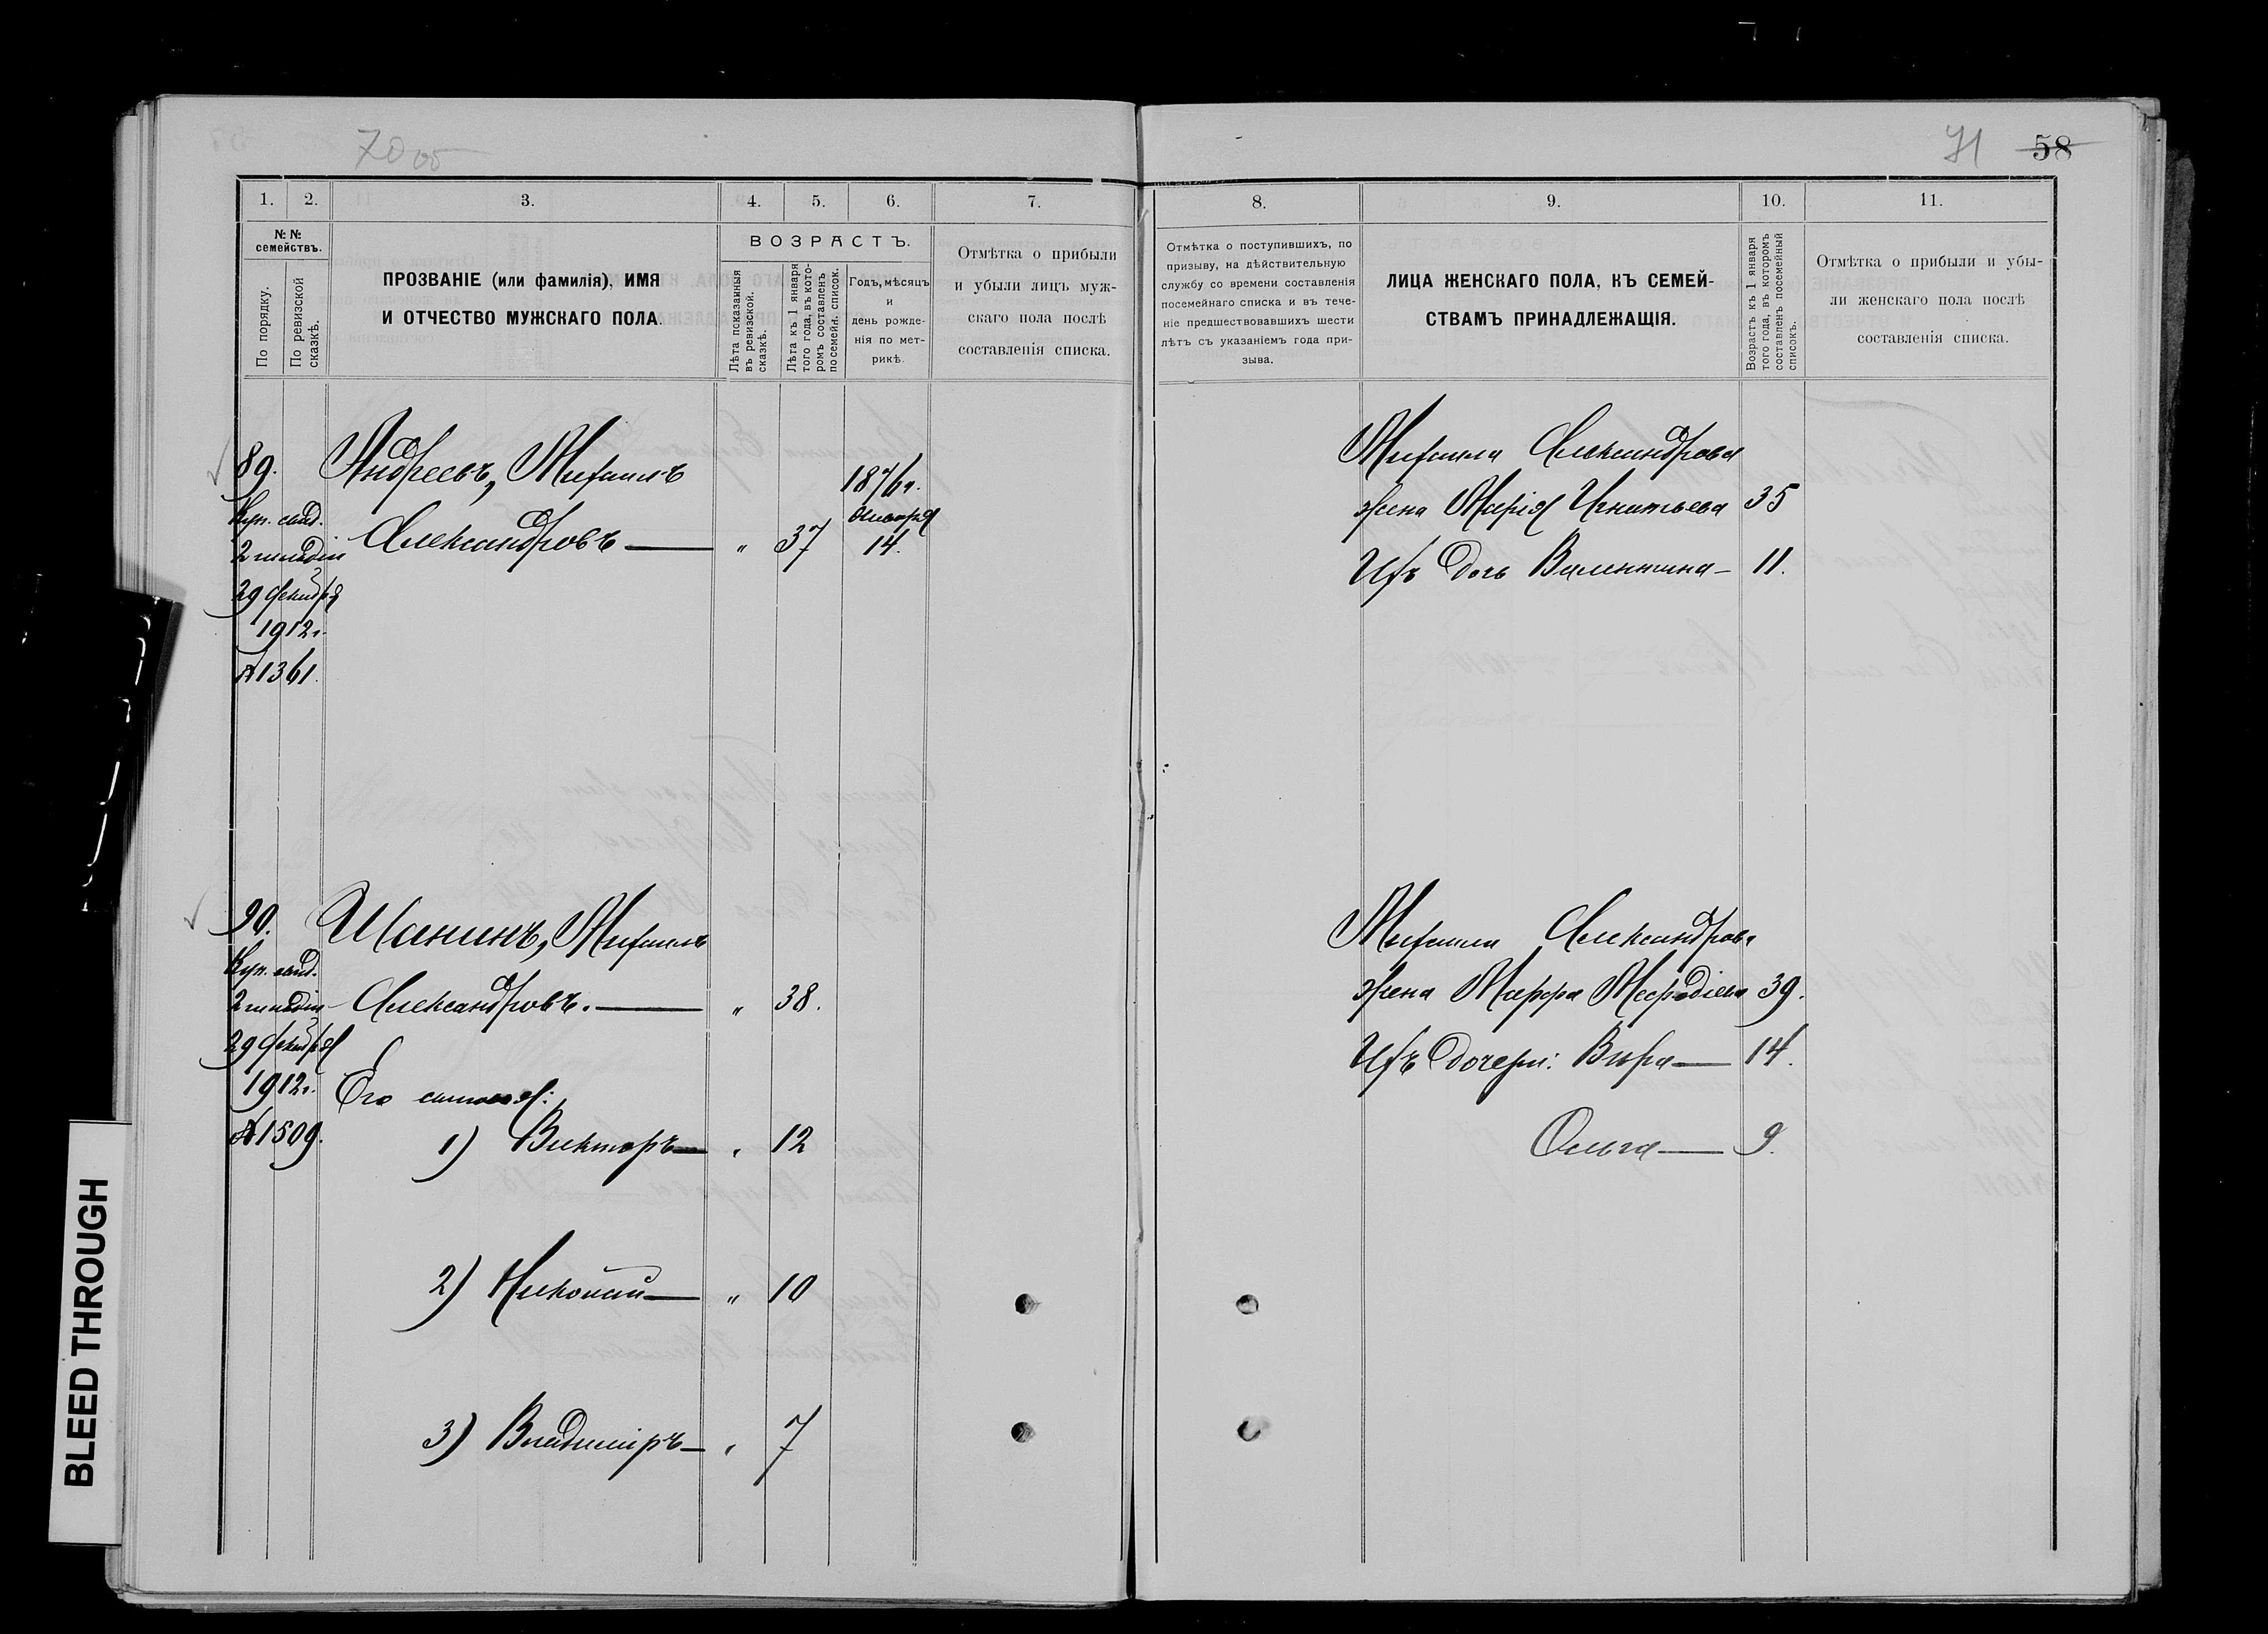 70 об
71 58
1. 2. 3. 4. 5. 6. 7.
№ № семействъ.
По порядку.
По ревизской сказкѣ.
ПРОЗВАНІЕ (или фамилія), ИМЯ
И ОТЧЕСТВО МУЖСКАГО ПОЛА.
ВОЗРАСТЪ.
Лѣта показанныя
въ ревизской.
сказкѣ.
Лѣта къ 1 января
того года, въ кото-
ромъ составленъ
посемейн. список.
Годъ, мѣсяцъ
и
день рожде-
нія по мет-
рикѣ.
Отмѣтка о прибыли
и убыли лицъ муж-
скаго пола послѣ
составленія списка.
89. Андреевъ, Михаилъ
Александровъ — " 37
1876 г.
Января
14.
Куп. свид.
2 гильдіи
29 Декабря
1912 г.
№ 1361.
90. Шанинъ, Михаилъ
Александровъ. — " 38.
Куп. свид.
2 гильдіи
29 Декабря
1912 г.
№ 1509.
Его сыновья:
1) Викторъ — " 12
2) Николай — " 10
3) Владиміръ — " 7
8. 9. 10. 11.
Отмѣтка о поступившихъ, по
призыву, на дѣйствительную
службу со времени составленія
посемейнаго списка и въ тече-
ніе предшествовавшихъ шести
лѣтъ съ указаніемъ года при-
зыва.
ЛИЦА ЖЕНСКАГО ПОЛА, КЪ СЕМЕЙ-
СТВАМЪ ПРИНАДЛЕЖАЩІЯ.
Возрастъ къ 1 января
того года, въ которомъ
составленъ посемейный
списокъ.
Отмѣтка о прибыли и убы-
ли женскаго пола послѣ
составленія списка.
Михаила Александрова
жена Марія Игнатьева 35
Ихъ дочь Валентина — 11.
Михаила Александрова
жена Марфа Мефодіева 39.
Ихъ дочери: Вѣра — 14.
Ольга — 9.
BLEED THROUGH